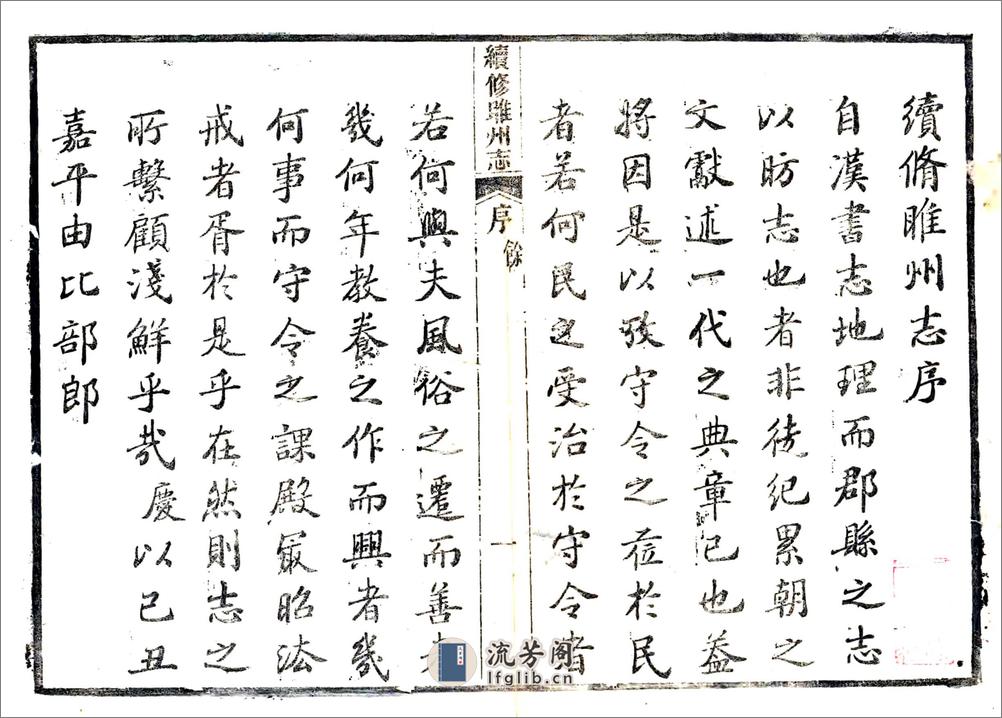 續脩睢州志序
自漢書志地理而郡縣之志
以昉志也者非徒紀累朝之
文獻述一代之典章已也蓋
將因是以攷守令之莅於民
者若何民之受治於守令者
續修睢州志
序
餘
一
若何與夫風俗之遷而善者
幾何年教養之作而興者幾
何事而守令之課殿最昭法
戒者胥於是乎在然則志之
所繫顧淺鮮乎哉慶以己丑
嘉平由比部郎
流芳阁
lfglib.cn